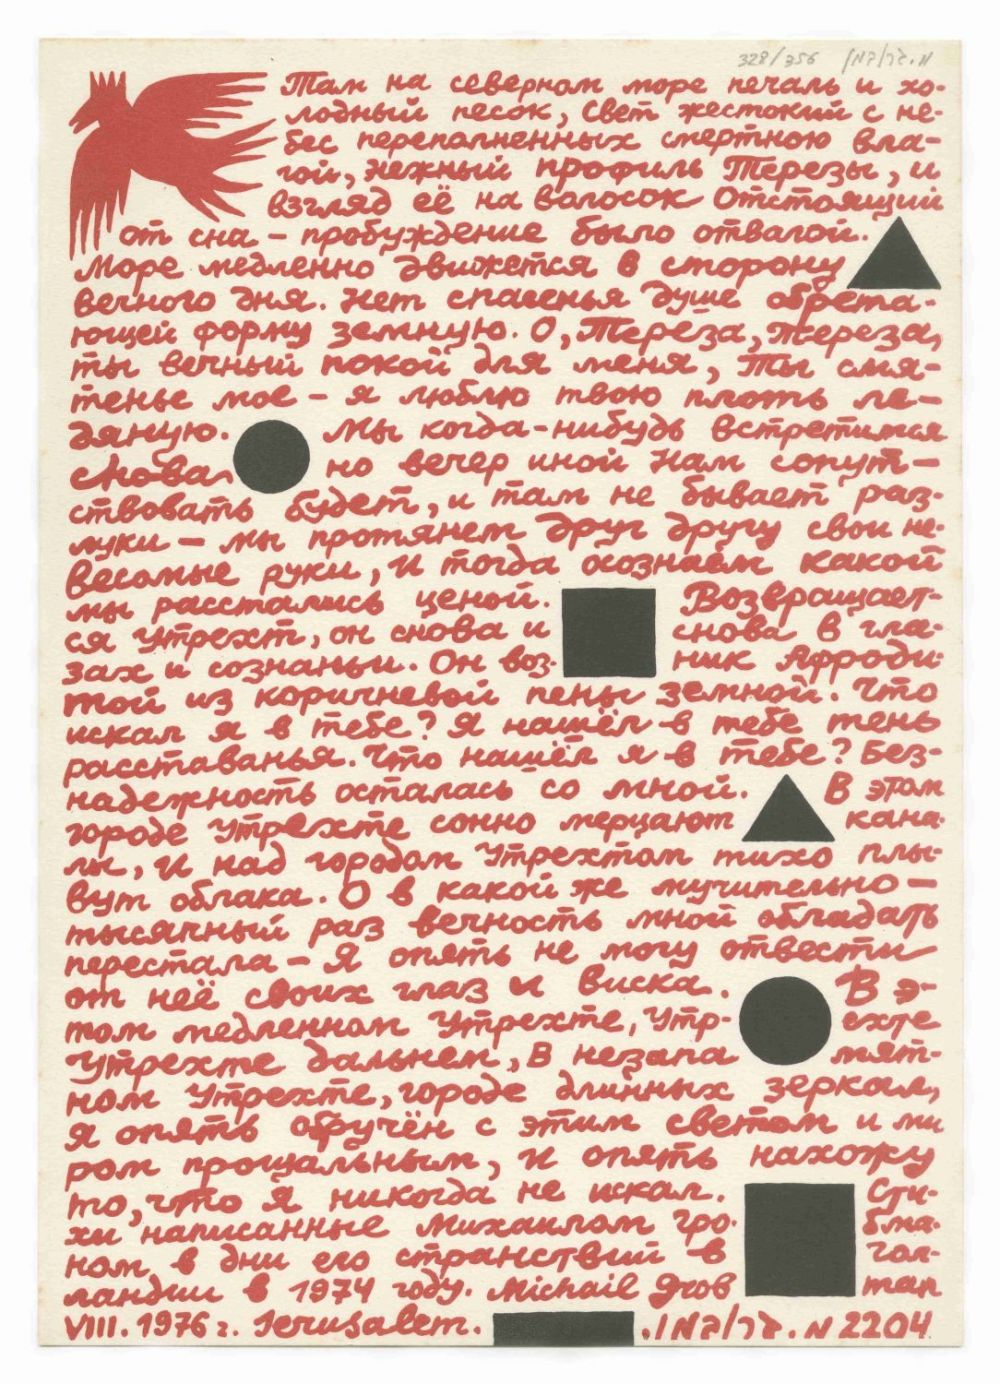 328/356 מ. גרובמן
Там на северном море печаль и хо-
лодный песок, свет жестокий с не-
бес переполненных смертною вла-
гой, нежный профиль Терезы, и
взгляд её на волосок отстоящий
от сна – пробуждение было отвагой.
Море медленно движется в сторону
вечного дня. Нет спасенья душе обрета-
ющей форму земную. О, Тереза, Тереза,
ты вечный покой для меня, ты смя-
тенье мое – я люблю твою плоть ле-
дяную. Мы когда-нибудь встретимся
снова но вечер иной нам сопут-
ствовать будет, и там не бывает раз-
луки – мы протянем друг другу свои не-
весомые руки, и тогда осознаём какой
мы расстались ценой. Возвращает-
ся Утрехт, он снова и снова в гла-
зах и сознаньи. Он воз- ник Афроди-
той из коричневой пены земной. Что
искал я в тебе? Я нашёл в тебе тень
расставанья. Что нашёл я в тебе? Без-
надежность осталась со мной. В этом
городе Утрехте сонно мерцают кана-
лы, и над городом Утрехтом тихо плы-
вут облака. О в какой же мучительно –
тысячный раз вечность мной обладать
перестала – Я опять не могу отвести
от неё своих глаз и виска. В э-
том медленном Утрехте, Утр- ехте
Утрехте дальнем, в незапа мят-
ном Утрехте, городе длинных зеркал,
я опять обручён с этим светом и ми
ром прощальным, и опять нахожу
то, что я никогда не искал. Сти-
хи написанные Михаилом Гро- бма-
ном в дни его странствий в Гол-
ландии в 1974 году. Michail Grob man
VIII. 1976 г. Jerusalem. מ. גרובמן. 2204